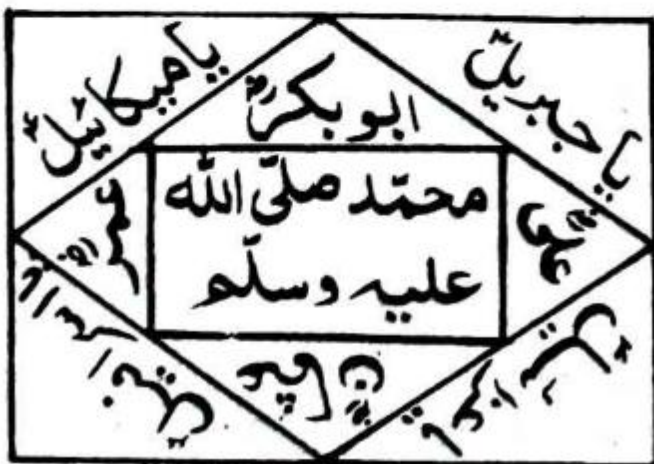 یا جبریلؑ
یا میکائیلؑ
ابوبکرؓ
محمّد صلّی اللہ
علیہ وسلّم
علیؓ
عمرؓ
عثمانؓ
یا عزرائیلؑ
یا اسرافیلؑ